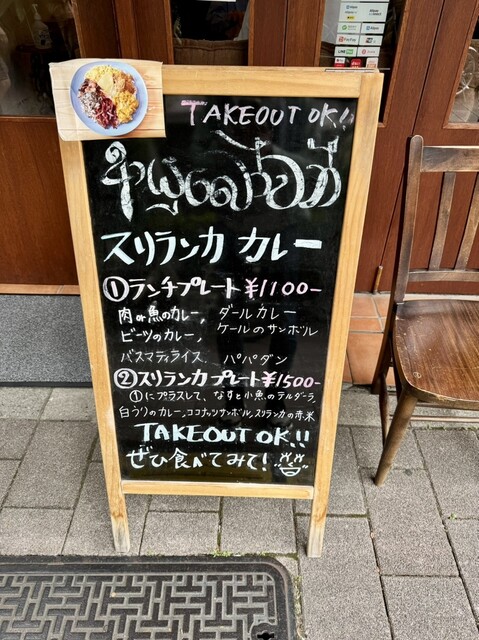 TAKEOUT OK!!
スリランカ カレー
①ランチプレート ¥1100-
肉or魚のカレー、ダールカレー
ビーツのカレー、ケールのサンボル
バスマティライス、パパダン
②スリランカプレート¥1500-
①にプラスして、なすと小魚のテルダーラ、
白うりのカレー、ココナッツサンボル、スリランカの赤米
TAKEOUT OK!!
ぜひ食べてみて!